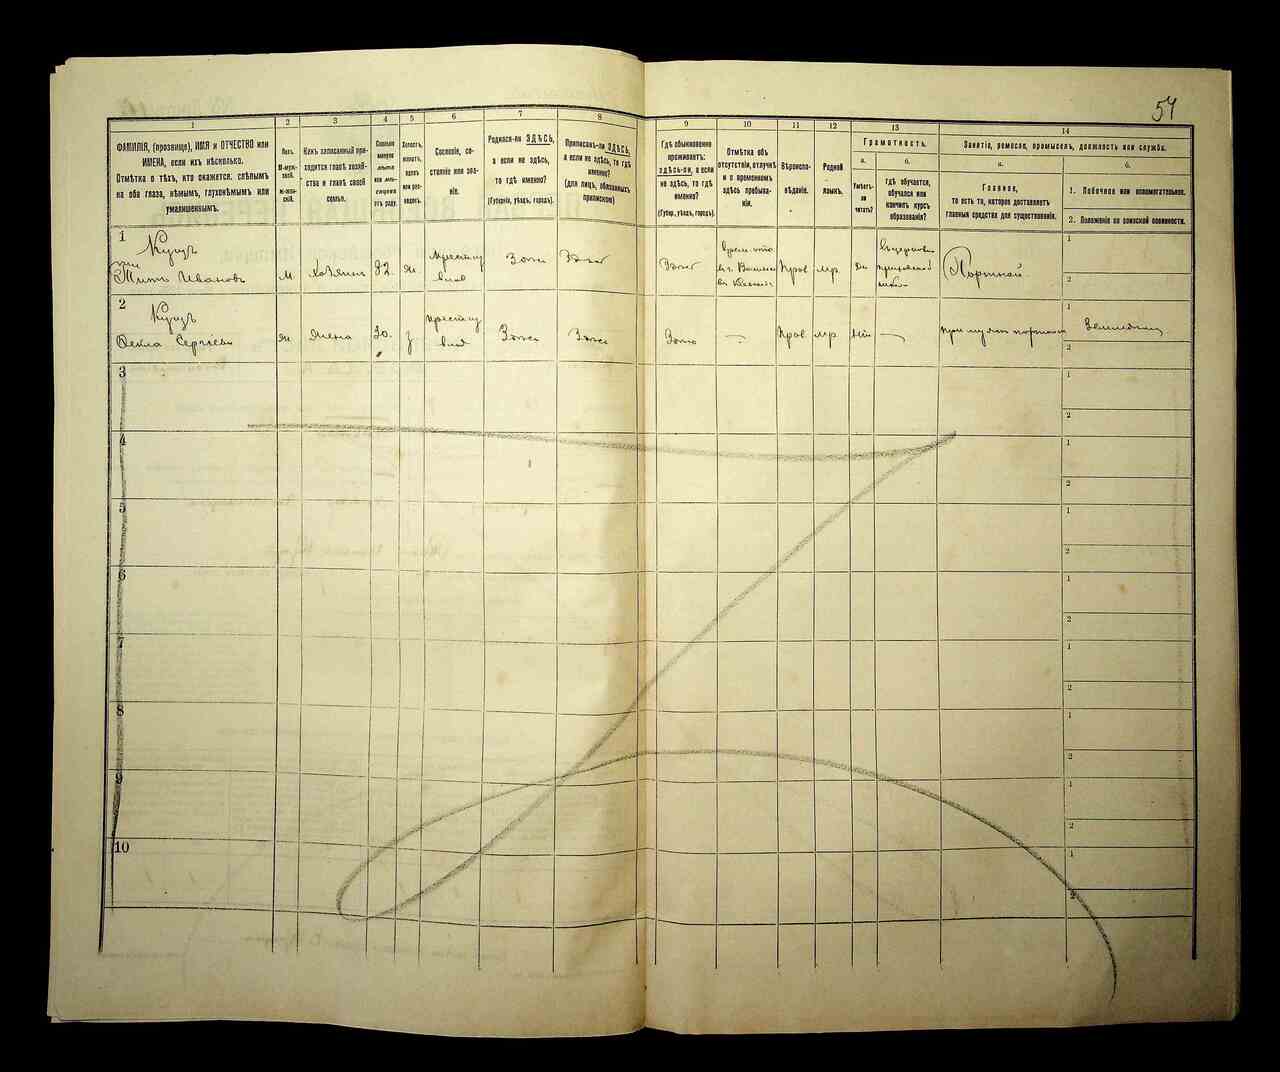 54
1
2
3
4
5
6
7
8
9
10
11
12
13
14
ФАМИЛІЯ, (прозвище), ИМЯ и ОТЧЕСТВО или
ИМЕНА, если ихъ нѣсколько.
Отмѣтка о тѣхъ, кто окажется: слѣпымъ
на оба глаза, нѣмымъ, глухонѣмымъ или
умалишеннымъ.
Полъ.
М-муж-
ской.
Ж-жен-
скій.
Какъ записанный при-
ходится главѣ хозяй-
ства и главѣ своей
семьи.
Сколько
минуло
лѣтъ
или мѣ-
сяцевъ
отъ роду.
Холостъ,
женатъ,
вдовъ
или раз-
веденъ.
Сословіе, со-
стояніе или зва-
ніе.
Родился-ли ЗДѢСЬ,
а если не здѣсь,
то гдѣ именно?
(Губернія, уѣздъ, городъ).
Приписанъ-ли ЗДѢСЬ,
а если не здѣсь, то гдѣ
именно?
(для лицъ, обязанныхъ
припискою)
Гдѣ обыкновенно
проживаетъ:
здѣсь-ли, а если
не здѣсь, то гдѣ
именно?
(Губер., уѣздъ, городъ).
Отмѣтка объ
отсутствіи, отлучкѣ
и о временномъ
здѣсь пребыва-
ніи.
Вѣроиспо-
вѣданіе.
Родной
языкъ.
Грамотность.
а.
Умѣетъ-
ли
читать?
б.
гдѣ обучается,
обучался или
кончилъ курсъ
образованія?
Занятіе, ремесло, промыселъ, должность или служба.
а.
Главное,
то есть то, которое доставляетъ
главныя средства для существованія.
б.
1. Побочное или вспомогательное.
2. Положеніе по воинской повинности.
1
Куцъ
Титъ Ивановъ
м
хозяинъ
32.
ж
Крестья
Здѣсь
Здѣсь
Здѣсь
Прав
мр.
да
Портной
1
2
2
Куцъ
Фекла Сергѣева
ж
жена
30.
з
Крестья
Здѣсь
Здѣсь
Здѣсь
—
Прав
мр.
нѣтъ
—
при мужѣ
1
2
3
1
2
4
1
2
5
1
2
6
1
2
7
1
2
8
1
2
9
1
2
10
1
2